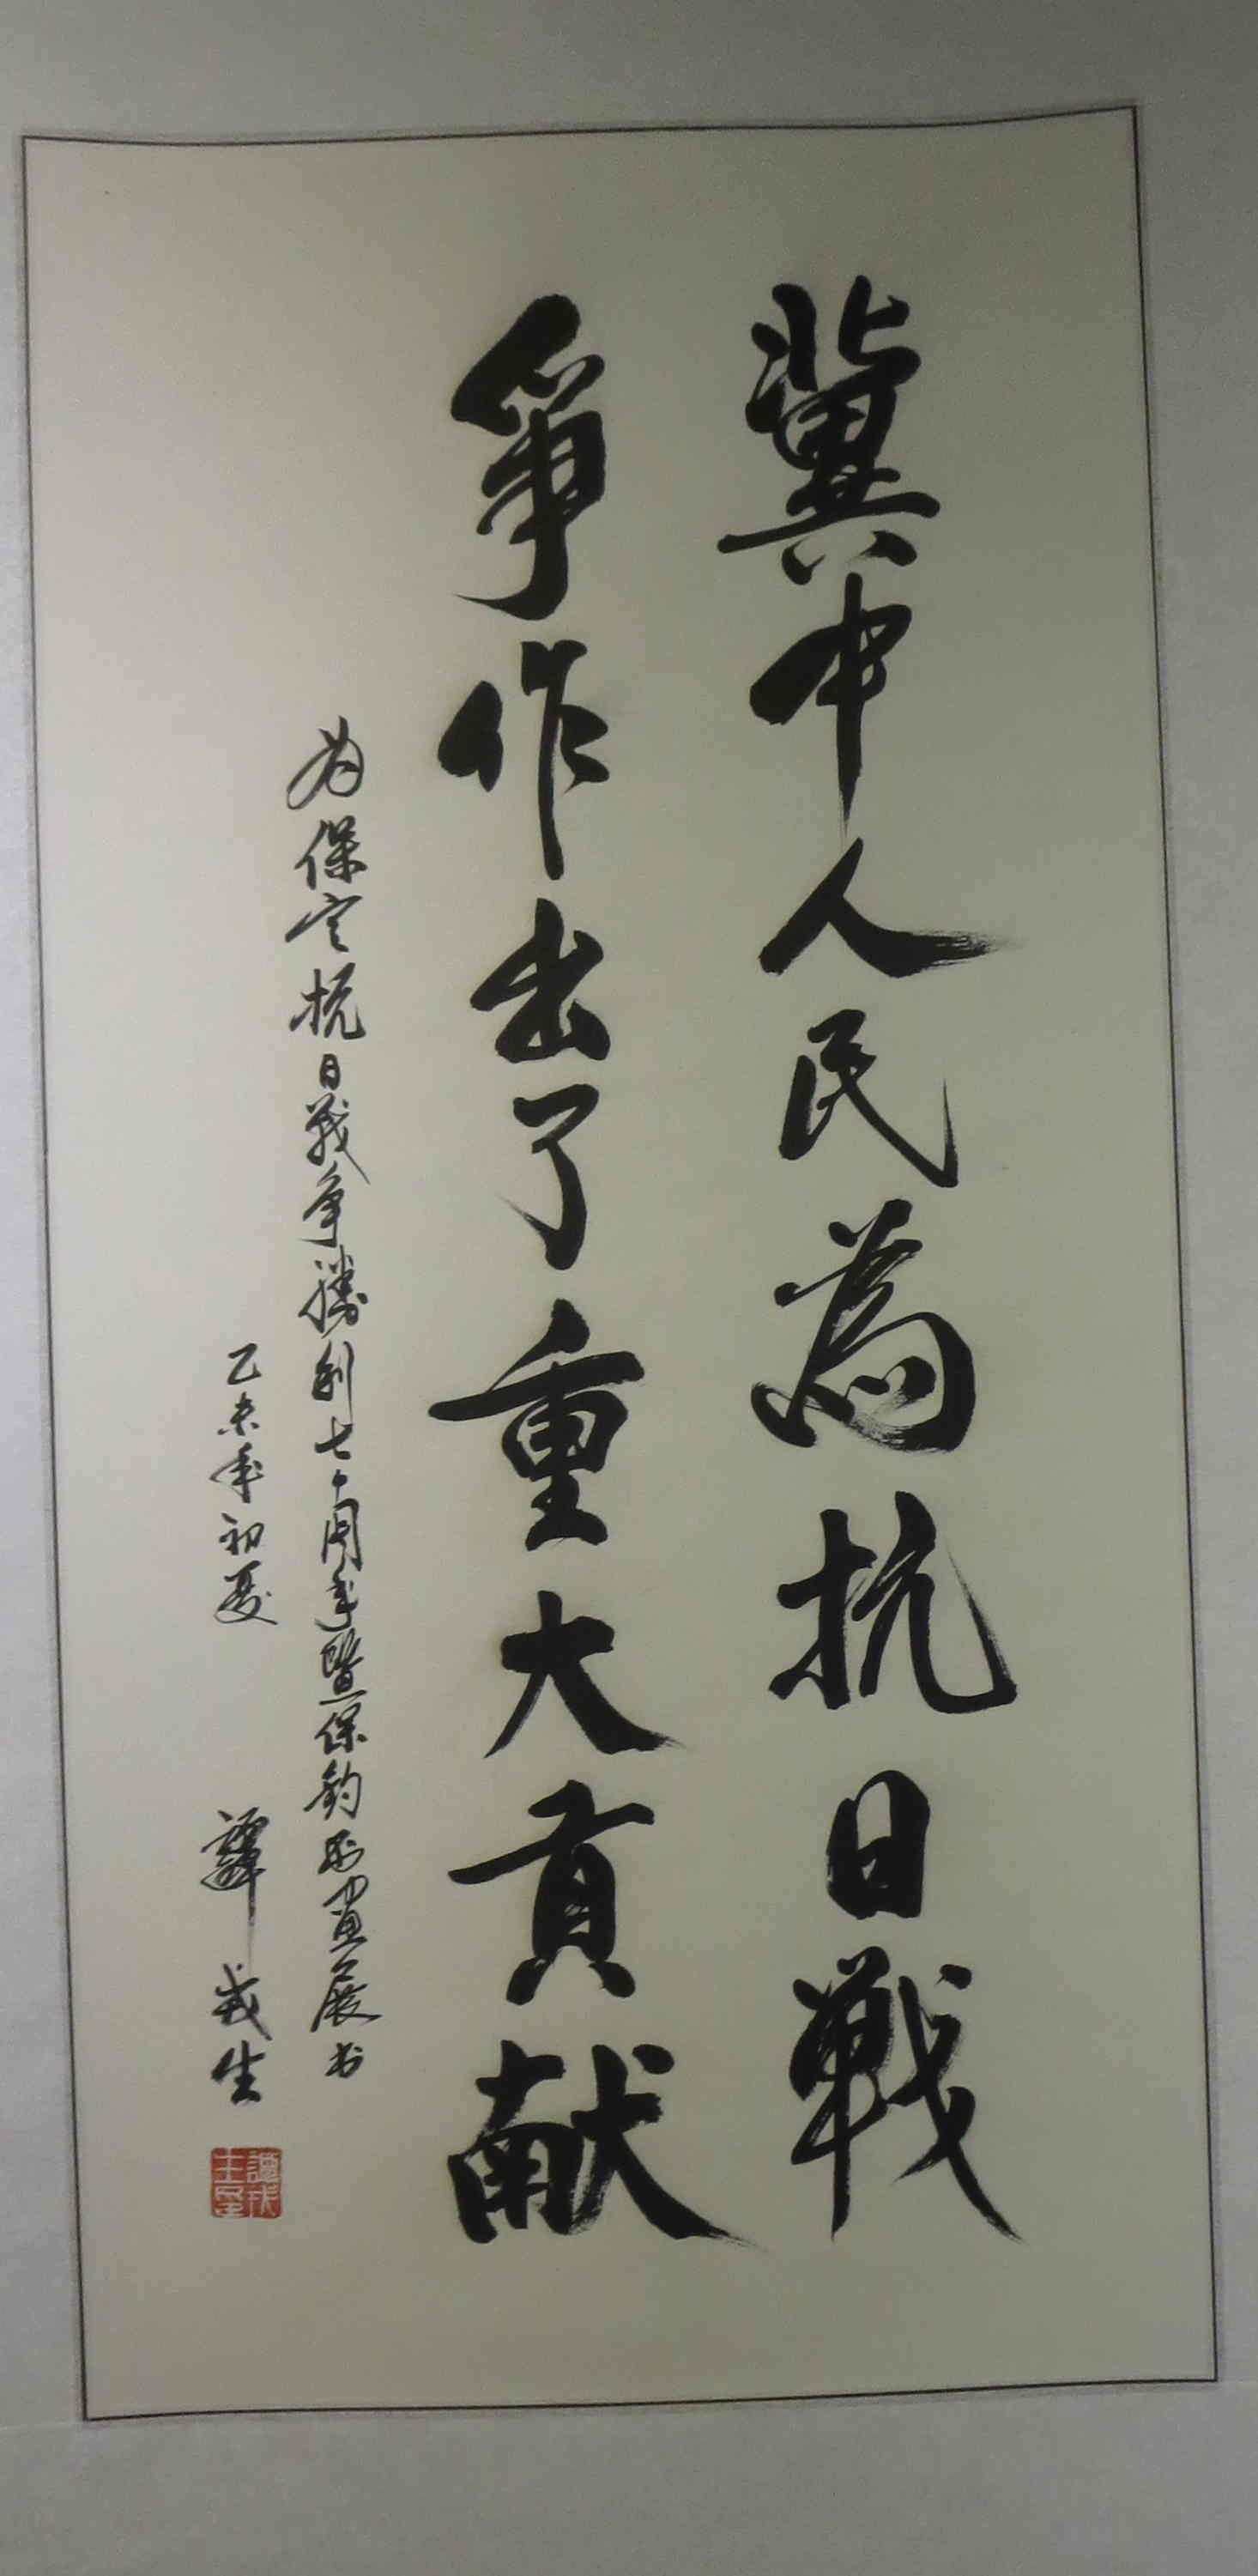 冀中人民為抗日戰
爭作出了重大貢献
为保定抗日战争勝利七十周年暨保钓书画展书
乙未年初夏
譚戎生